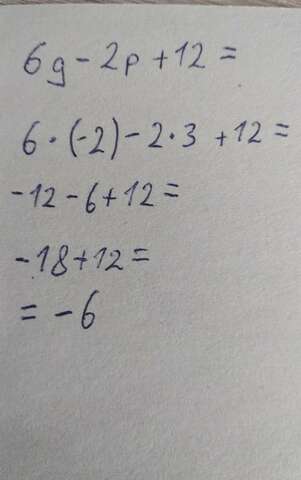 6g - 2p + 12 =
6 · (-2) - 2 · 3 + 12 =
-12 - 6 + 12 =
-18 + 12 =
= -6